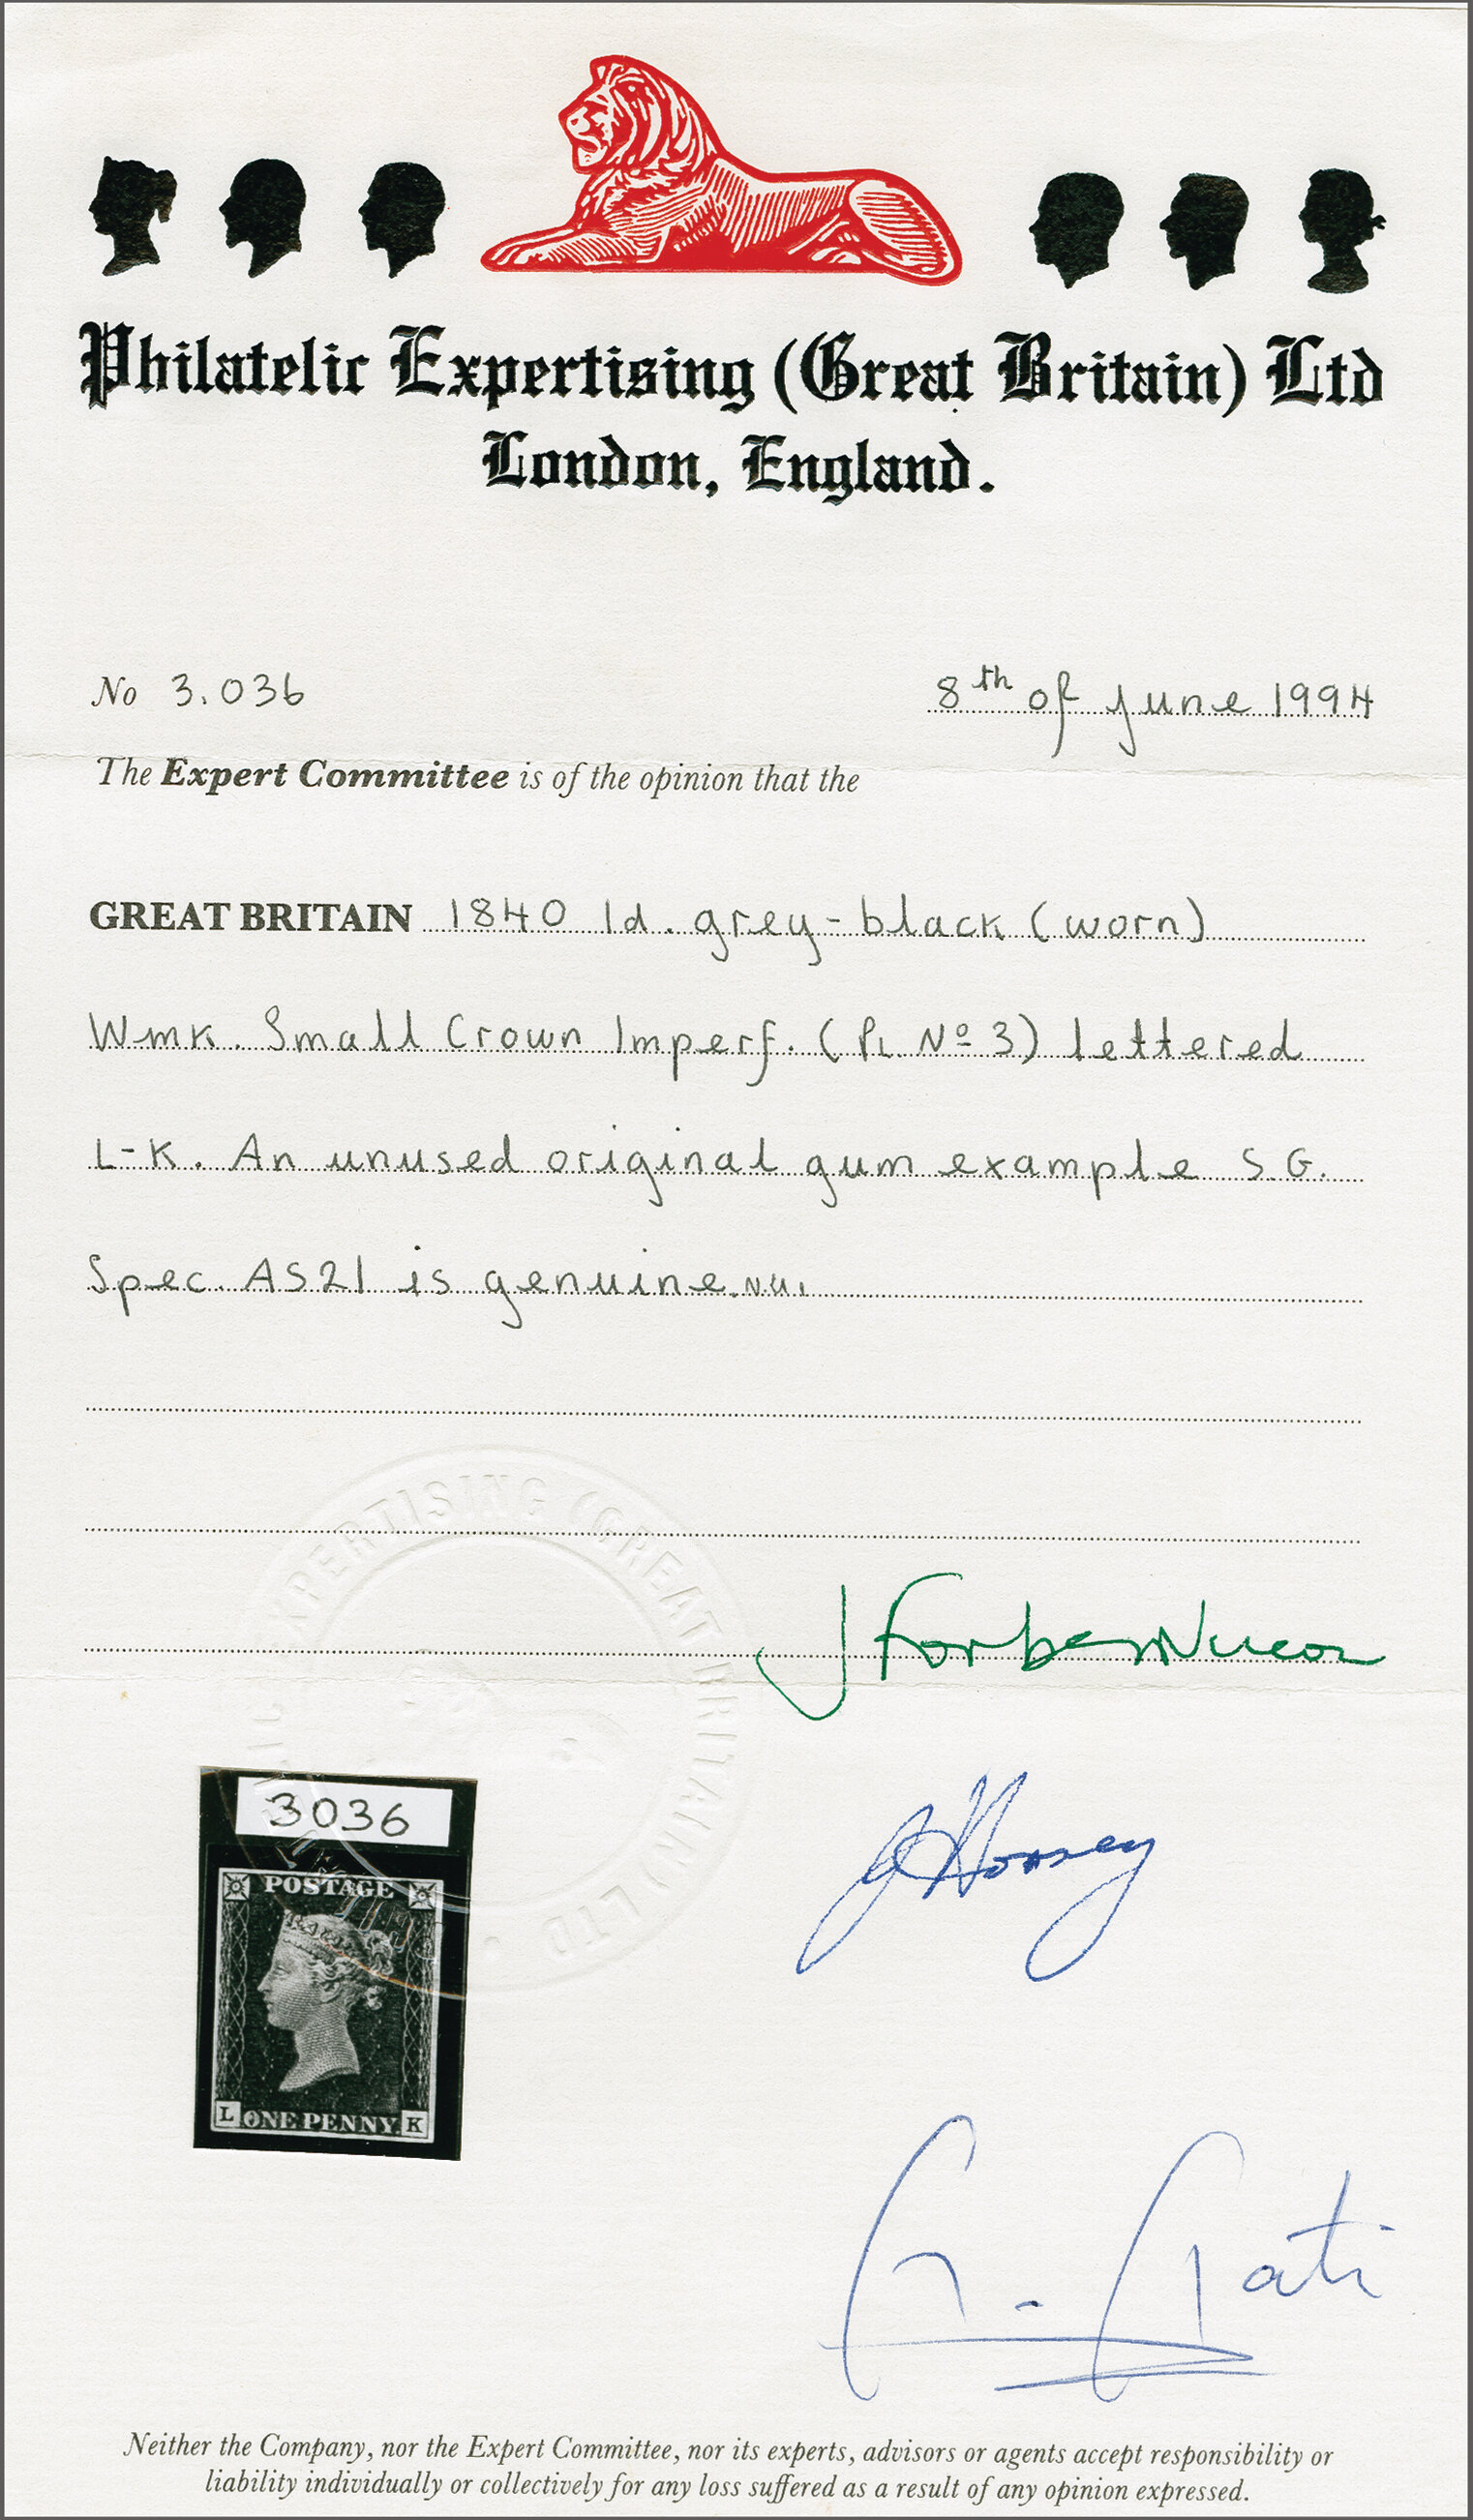 Philatelic Expertising (Great Britain) Ltd
London, England.
No 3.036
8th of june 1994
The Expert Committee is of the opinion that the
GREAT BRITAIN 1840 1d. grey-black (worn)
Wmk. Small Crown Imperf. (PL Nº 3) lettered
L-K. An unused original gum example S.G.
Spec. AS21 is genuine.
EXPERTISING (GREAT BRITAIN) LTD
3036
POSTAGE
L ONE PENNY. K
Neither the Company, nor the Expert Committee, nor its experts, advisors or agents accept responsibility or
liability individually or collectively for any loss suffered as a result of any opinion expressed.